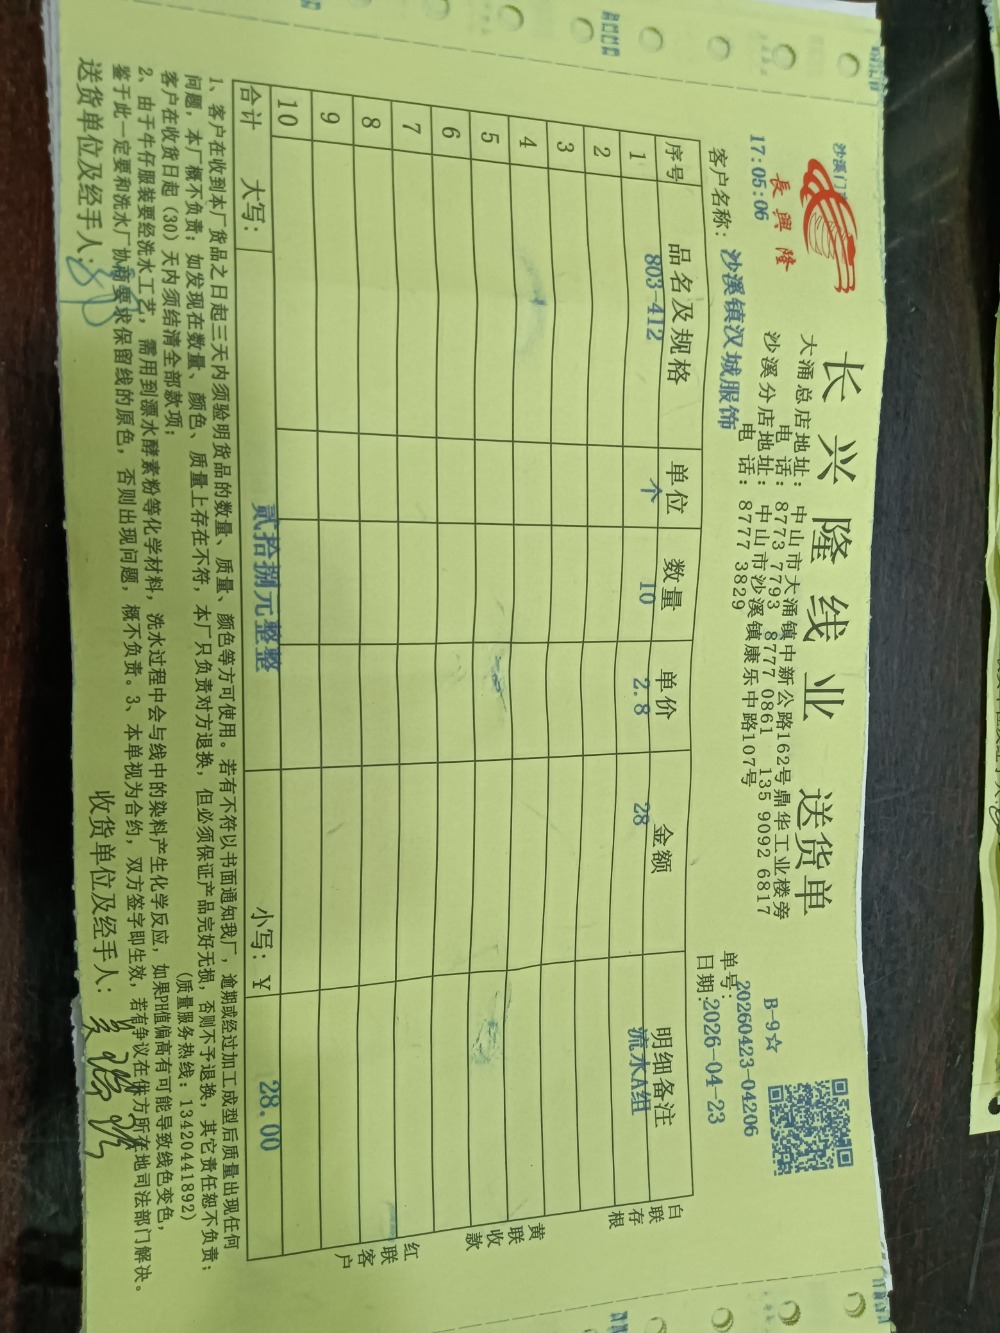 沙溪门市
17:05:06
長興隆
长兴隆线业 送货单
大涌总店地址: 中山市大涌镇中新公路162号鼎华工业楼旁
电 话: 8773 7793 8777 0861 135 9092 6817
沙溪分店地址: 中山市沙溪镇康乐中路107号
电 话: 8777 3829
B-9☆
单号: 20260423-04206
客户名称: 沙溪镇汉城服饰
日期: 2026-04-23
序号 品名及规格 单位 数量 单价 金额 明细备注
1 803-412 个 10 2.8 28 流水A组
2
3
4
5
6
7
8
9
10
合计 大写: 贰拾捌元整整 小写: ¥ 28.00
白联存根
黄联收款
红联客户
1、客户在收到本厂货品之日起三天内须验明货品的数量、质量、颜色等方可使用。若有不符以书面通知我厂,逾期或经过加工成型后质量出现任何
问题,本厂概不负责;如发现在数量、颜色、质量上存在不符,本厂只负责对方退换,但必须保证产品完好无损,否则不予退换,其它责任恕不负责;
客户在收货日起(30)天内须结清全部款项; (质量服务热线: 13420441892)
2、由于牛仔服装要经洗水工艺,需用到漂水酵素粉等化学材料,洗水过程中会与线中的染料产生化学反应,如果PH值偏高有可能导致线色变色,
鉴于此一定要和洗水厂协商要求保留线的原色,否则出现问题,概不负责。3、本单视为合约,双方签字即生效,若有争议在供方所在地司法部门解决。
送货单位及经手人: 收货单位及经手人: